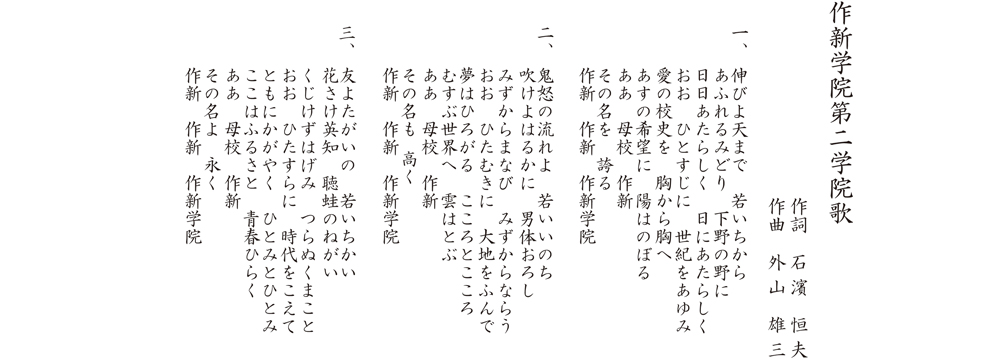 作新学院第二学院歌
作詞　石濱　恒夫
作曲　外山　雄三
一、
伸びよ天まで　若いちから
あふれるみどり　下野の野に
日日あたらしく　日にあたらしく
おお　ひとすじに　世紀をあゆみ
愛の校史を　胸から胸へ
あすの希望に　陽はのぼる
ああ　母校　作新
その名を　誇る
作新　作新　作新学院
二、
鬼怒の流れよ　若いいのち
吹けよはるかに　男体おろし
みずからまなび　みずからならう
おお　ひたむきに　大地をふんで
夢はひろがる　こころとこころ
むすぶ世界へ　雲はとぶ
ああ　母校　作新
その名も　高く
作新　作新　作新学院
三、
友よたがいの　若いちかい
花さけ英知　聴蛙のねがい
くじけずはげみ　つらぬくまこと
おお　ひたすらに　時代をこえて
ともにかがやく　ひとみとひとみ
ここはふるさと　青春ひらく
ああ　母校　作新
その名よ　永く
作新　作新　作新学院